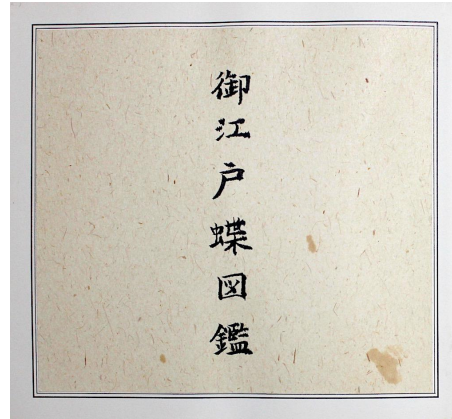 御江戸蝶図鑑